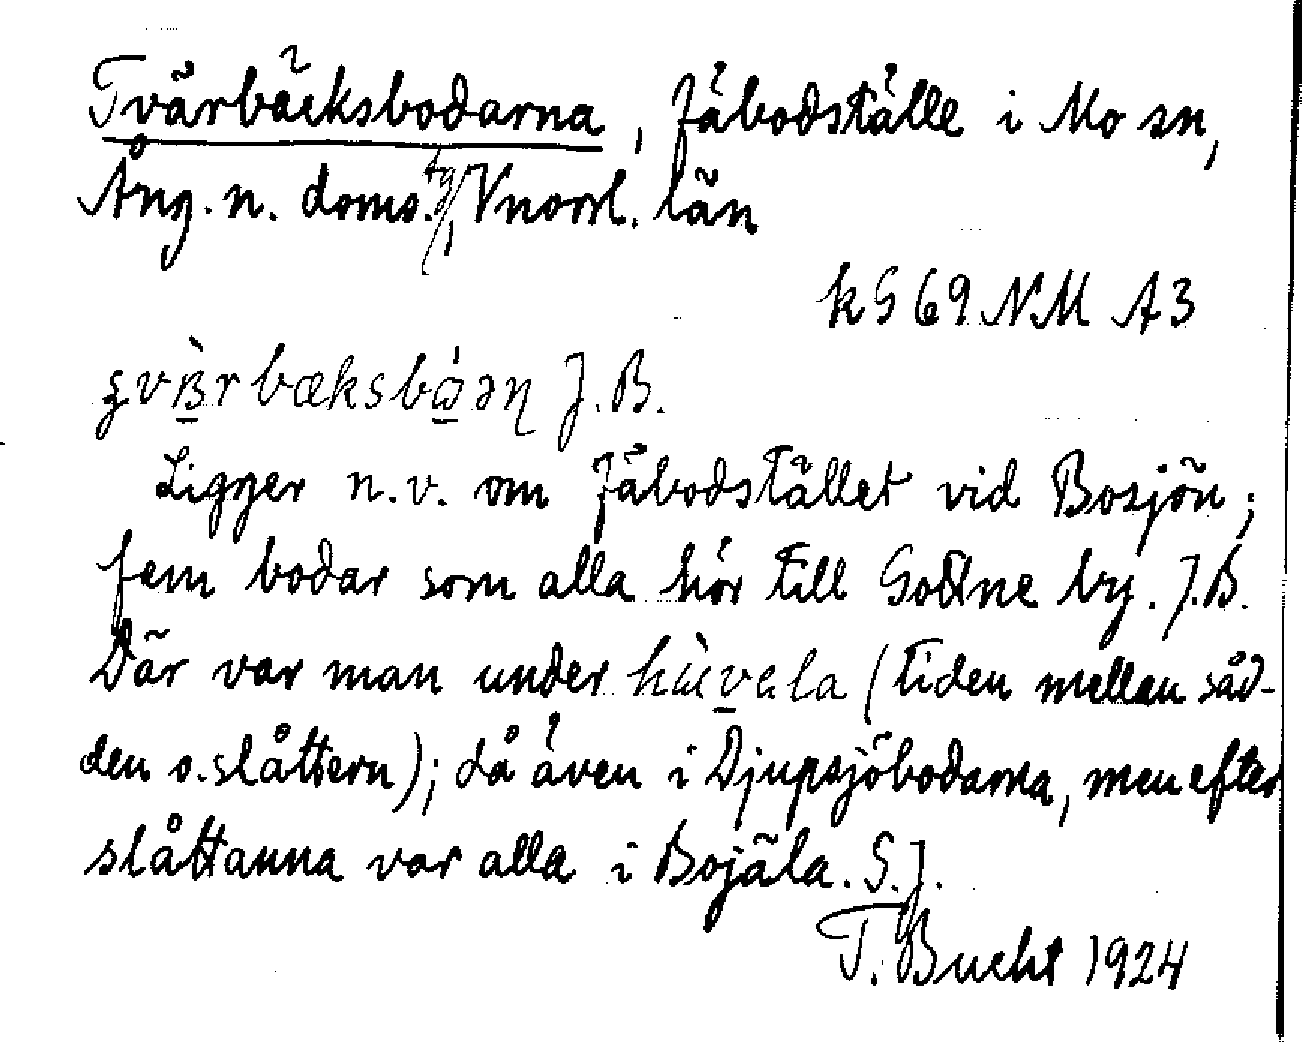 Tvärbäcksbodarna, fäbodställe i Mo sn,
Ång. n. doms.tg, Vnorrl. län
kG 69 NM A3
bæksb J.B.
Ligger n.v. om fäbodstället vid Bosjön;
fem bodar som alla hör till Gottne by. J.B.
Där var man under (tiden mellan såd-
den o. slåttern); då även i Djupsjöbodarna, men efter
slåttanna var alla i Bojäla. S.J.
T. Bucht 1924